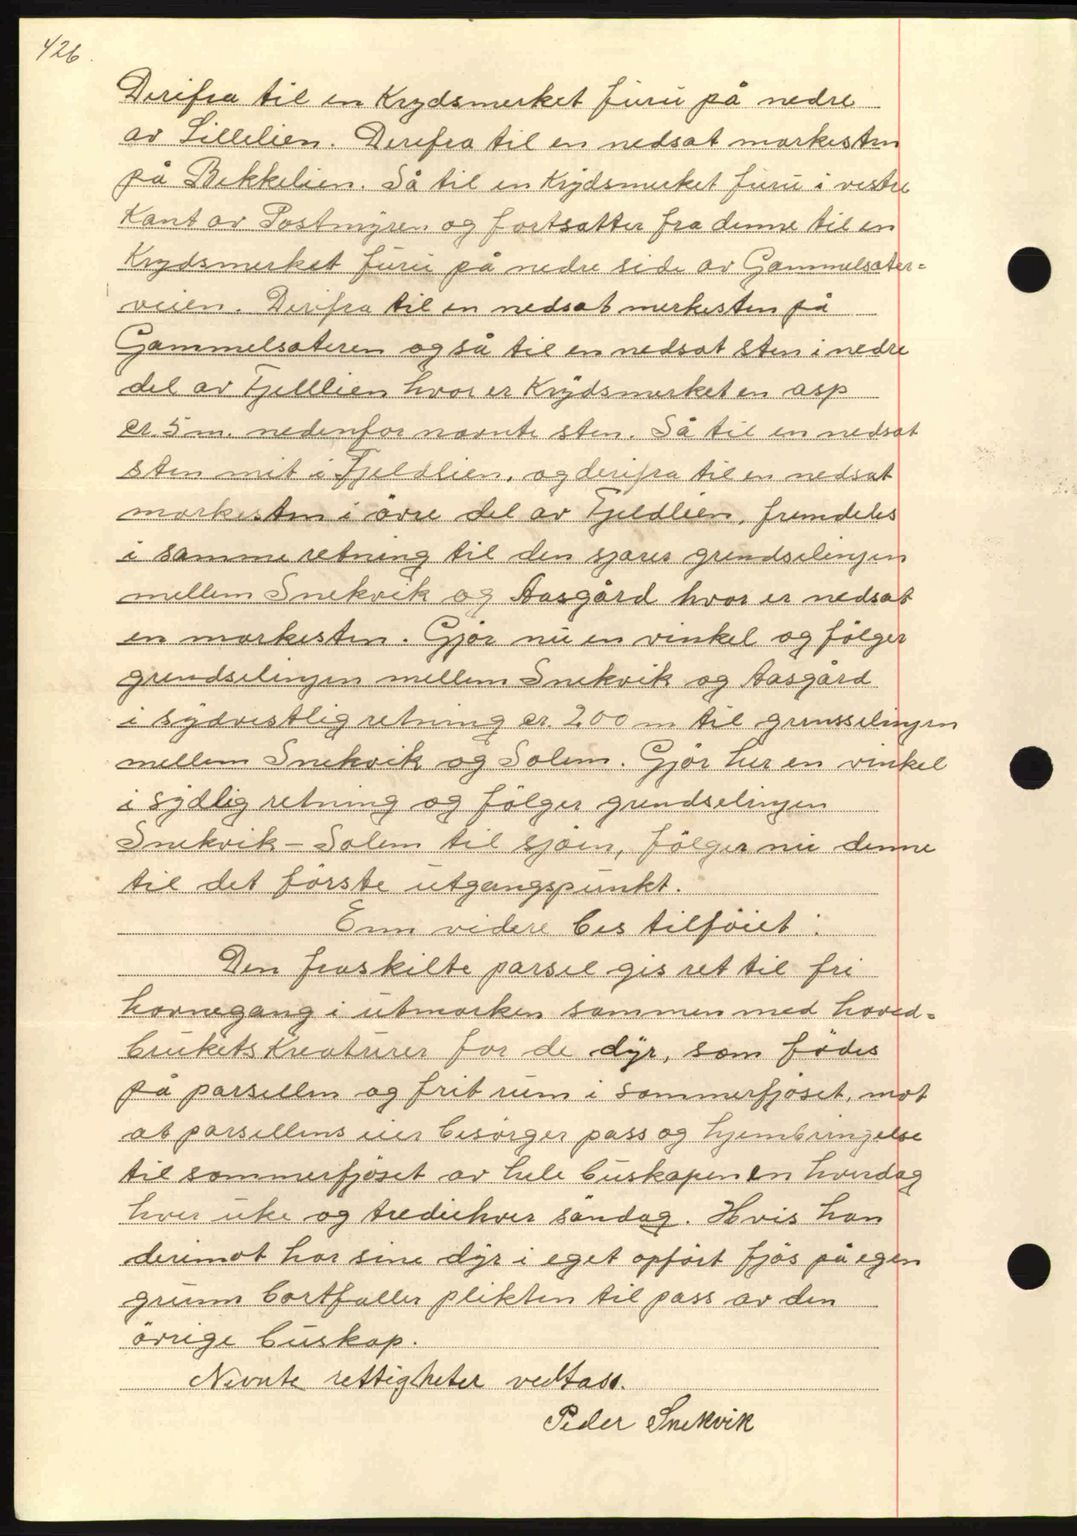 426.
Derifra til en Krydsmerket furu på nedre
av Lillelien. Derefra til en nedsat markesten
på Bekkelien. Så til en Krydsmerket furu i vestre
Kant av Postmyren og fortsatter fra denne til en
Krydsmerket furu på nedre side av Gammelsater=
veien. Derifra til en nedsat merkesten på
Gammelsateren og så til en nedsat sten i nedre
del av Fjelllien hvor er Krydsmerket en asp
cr. 5 m. nedenfor navnte sten. Så til en nedsat
sten mit i Fjeldlien, og derifra til en nedsat
markesten i övre del av Fjeldlien, fremdeles
i samme retning til den sjares grendselinjen
mellem Snekvik og Aasgård hvor er nedsat
en markesten. Gjör nu en vinkel og fölger
grendselinjen mellem Snekvik og Aasgård
i sydvestlig retning cr. 200 m til grensselinjen
mellem Snekvik og Solem. Gjör her en vinkel
i sydlig retning og fölger grendselinjen
Snekvik – Solem til sjöen, fölger nu denne
til det förste utgangspunkt.
Enn videre bes tilföiet:
Den fraskilte parsel gis ret til fri
havnegang i utmarken sammen med hoved=
brukets Kreaturer for de dyr, som födes
på parsellen og frit rum i sommerfjöset, mot
at parsellens eier besörger pass og hjembringelse
til sommerfjöset av hele buskapen en hverdag
hver uke og trediehver söndag. Hvis han
derimot har sine dyr i eget opfört fjös på egen
grunn bortfaller plikten til pass av den
övrige buskap.
Nevnte rettigheter vedtass.
Peder Snekvik